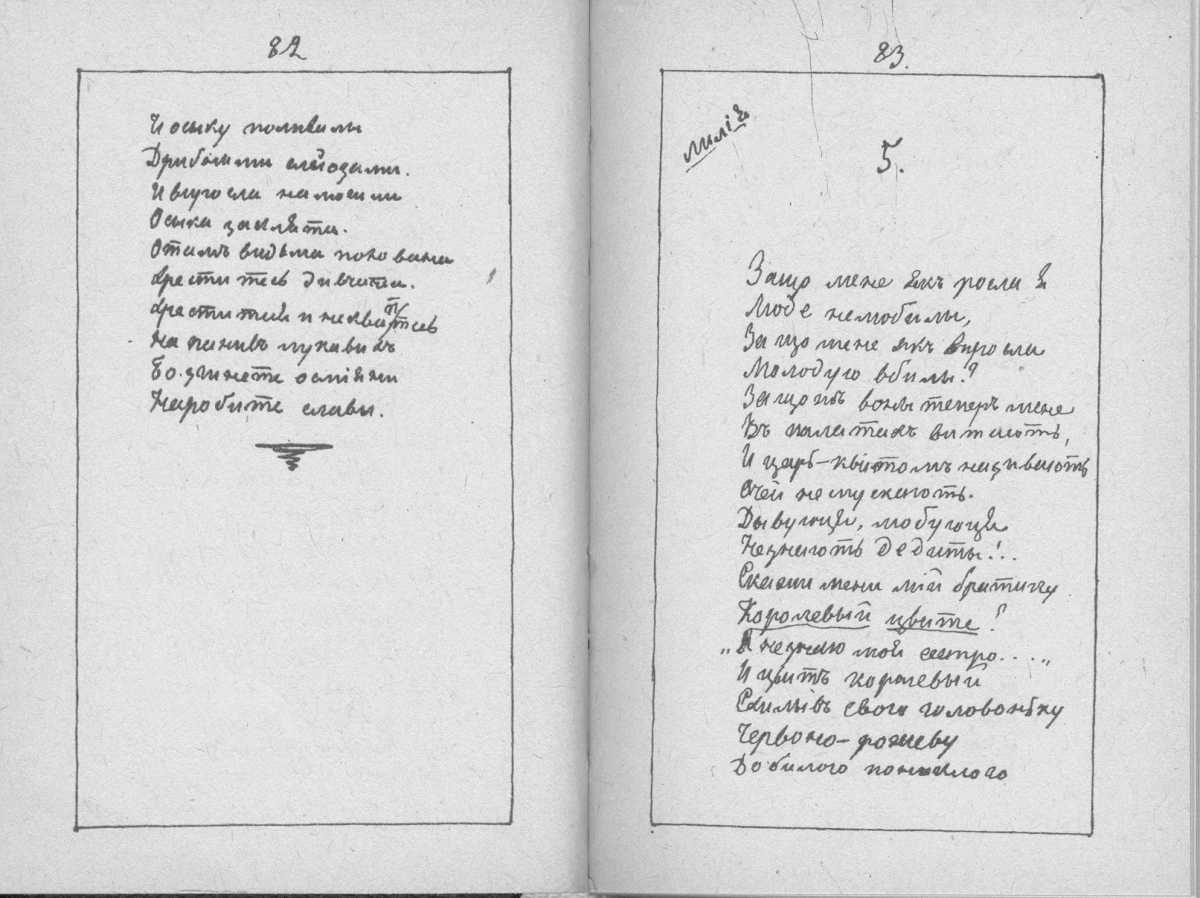 82
И осыку поливали
Дрибними слёзами.
И выросла на могили
Осыка заклята.
Отамъ видьма похована
Хреститесь дивчата.
Хреститися и некваптесь
На панивъ лукавихъ
Бо згинете осміяни
Наробите славы.
83.
Лилія
5.
Защо мене якъ росла я
Люде нелюбилы,
За що мене якъ выросла
Молодую вбилы?
Защожъ воны теперъ мене
Въ палатахъ витаютъ,
И царь-квітомъ називаютъ
Очей не спускаютъ.
Дывуюця, любуюця
Незнаютъ де диты!..
Скажи мени мій братику
Королевый цвите!
„Я незнаю моя сестро...."
И цвитъ королевый
Схиливъ свого головоньку
Червоно-рожеву
До билого пониклого